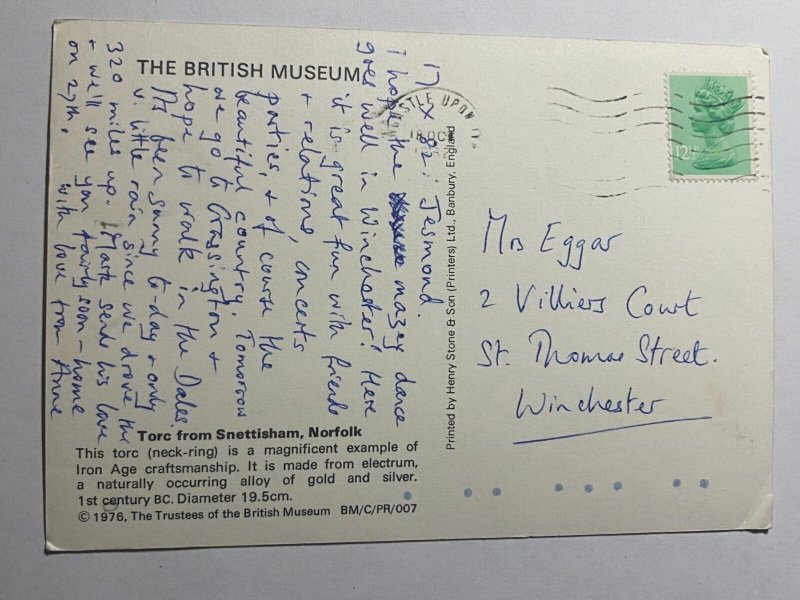 THE BRITISH MUSEUM
17 x 82. Jesmond.
I hope the mazey dance
goes well in Winchester! Here
it is great fun with friends
+ relations, concerts
parties, + of course the
beautiful country. Tomorrow
we go to Grassington +
hope to walk in the Dales.
It's been sunny to-day + only
v. little rain since we drove the
320 miles up. Mark sends his love
+ we'll see you fairly soon – home
on 27th,
with love from Anne
Torc from Snettisham, Norfolk
This torc (neck-ring) is a magnificent example of
Iron Age craftsmanship. It is made from electrum,
a naturally occurring alloy of gold and silver.
1st century BC. Diameter 19.5cm.
© 1976, The Trustees of the British Museum BM/C/PR/007
Printed by Henry Stone & Son (Printers) Ltd., Banbury, England
CASTLE UPON
18 OC
12½P
Mrs Eggar
2 Villiers Court
St. Thomas Street.
Winchester